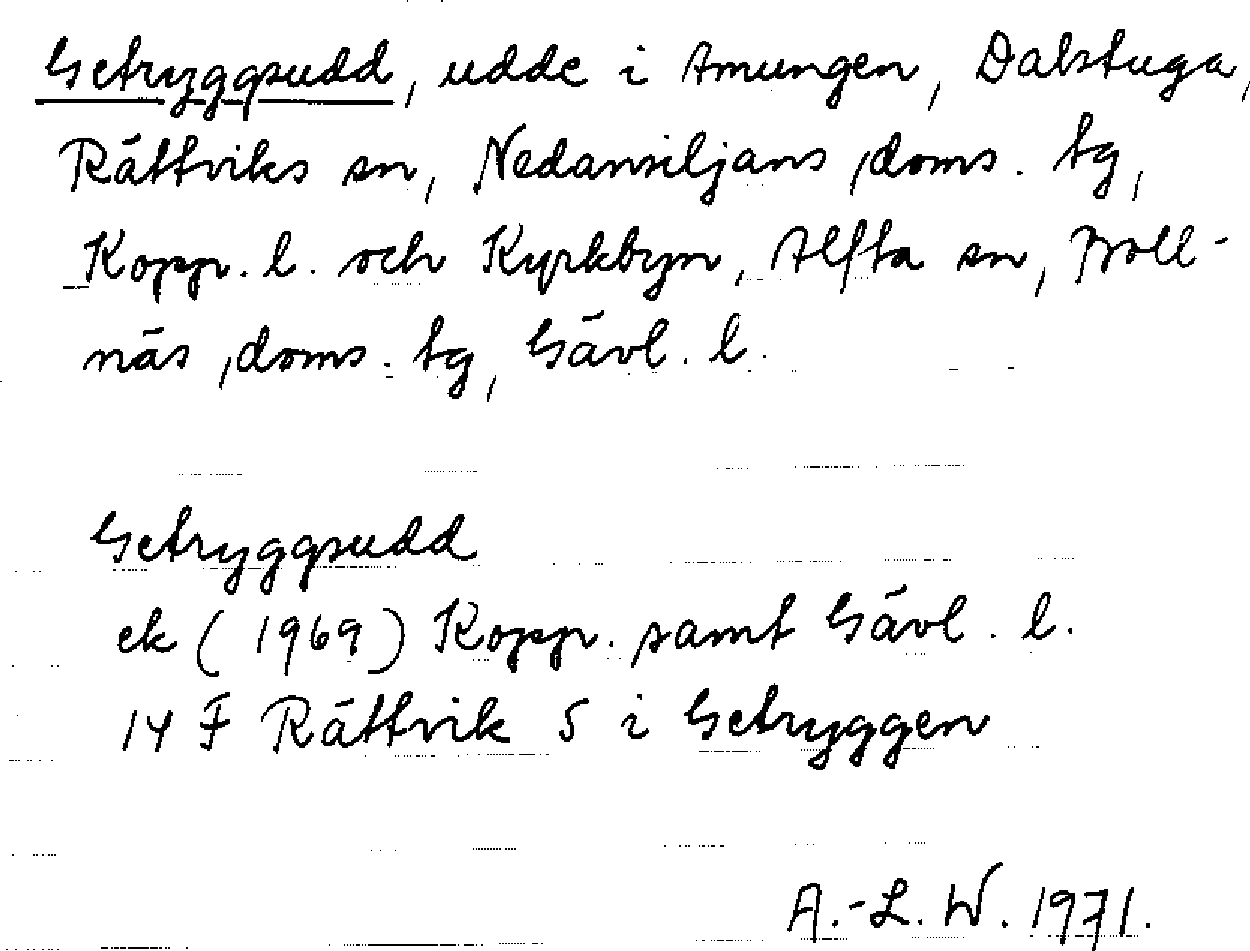 Getryggsudd, udde i Amungen, Dalstuga,
Rättviks sn, Nedansiljans doms. tg,
Kopp. l. och Kyrkbyn, Alfta sn, Boll-
näs doms. tg, Gävl. l.
Getryggsudd
ek (1969) Kopp. samt Gävl. l.
14 F Rättvik S i Getryggen
A.-L. W. 1971.